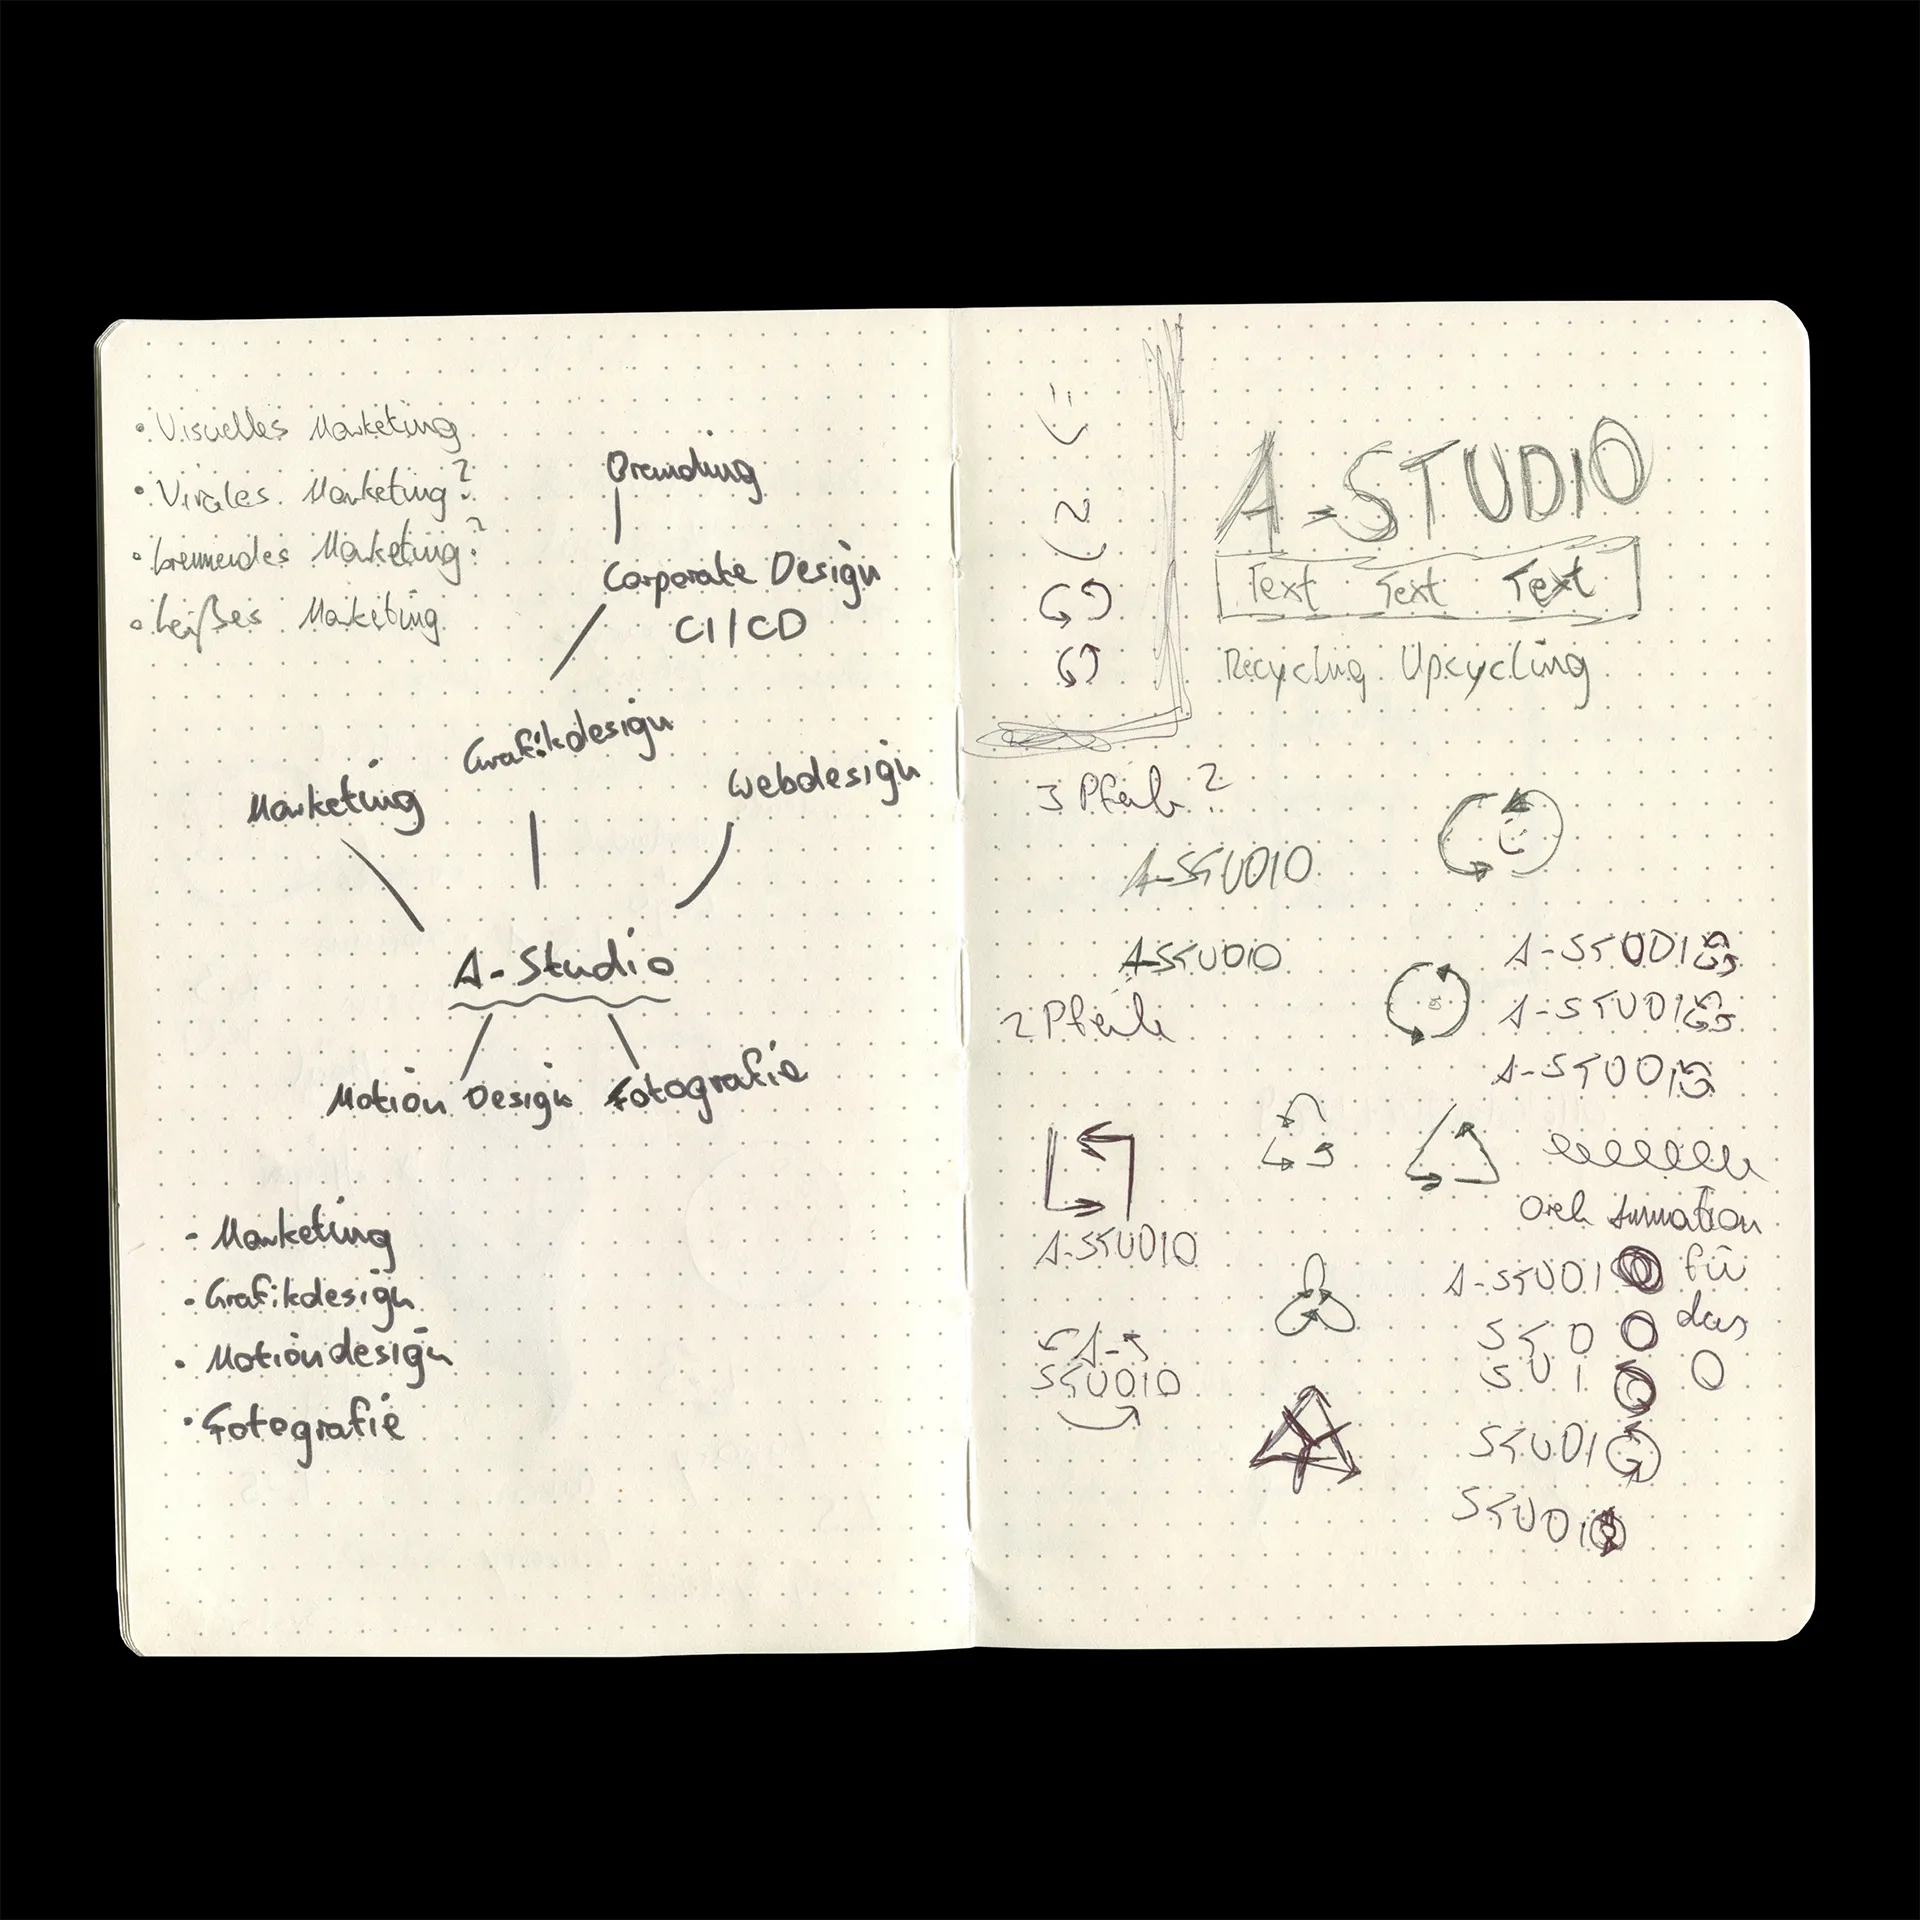 • Visuelles Marketing
• Virales Marketing?
• brennendes Marketing?
• heißes Marketing
Branding
Corporate Design
CI/CD
Grafikdesign
Marketing
Webdesign
A-Studio
Motion Design
Fotografie
- Marketing
• Grafikdesign
• Motiondesign
• Fotografie
A-STUDIO
Text Text Text
Recycling Upcycling
3 Pfeile?
A-STUDIO
A-STUDIO
2 Pfeile
A-STUDIO
A-STUDIO
A-STUDIO
Dreh Animation
für
das
O
A-STUDIO
A-
STUDIO
A-STUDIO
STUDIO
STUDIO